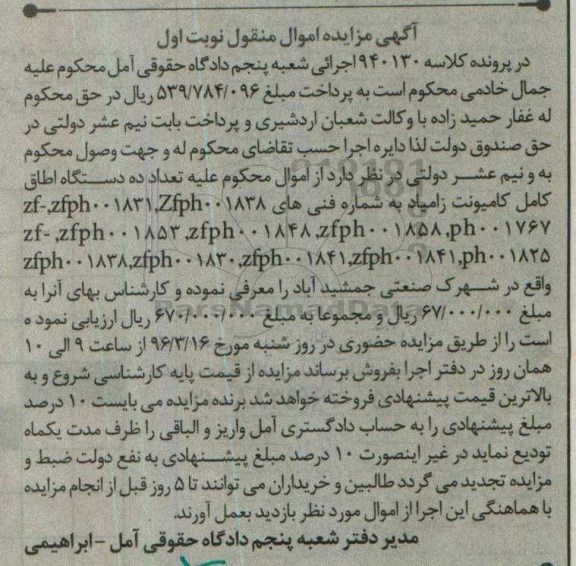 آگهی مزایده اموال منقول نوبت اول
در پرونده کلاسه ۹۴۰۱۳۰ اجرائی شعبه پنجم دادگاه حقوقی آمل محکوم علیه
جمال خادمی محکوم است به پرداخت مبلغ ۵۳۹/۷۸۴/۰۹۶ ریال در حق محکوم
له غفار حمید زاده با وکالت شعبان اردشیری و پرداخت بابت نیم عشر دولتی در
حق صندوق دولت لذا دایره اجرا حسب تقاضای محکوم له و جهت وصول محکوم
به و نیم عشر دولتی در نظر دارد از اموال محکوم علیه تعداد ده دستگاه اطاق
کامل کامیونت زامیاد به شماره فنی های zf-,zfph۰۰۱۸۳۱,Zfph۰۰۱۸۳۸
zf- ,zfph۰۰۱۸۵۳ ,zfph۰۰۱۸۴۸ ,zfph۰۰۱۸۵۸ ,ph۰۰۱۷۶۷
zfph۰۰۱۸۳۸,zfph۰۰۱۸۳۰,zfph۰۰۱۸۴۱,zfph۰۰۱۸۴۱,ph۰۰۱۸۲۵
واقع در شهرک صنعتی جمشید آباد را معرفی نموده و کارشناس بهای آنرا به
مبلغ ۶۷/۰۰۰/۰۰۰ ریال و مجموعا به مبلغ ۶۷۰/۰۰۰/۰۰۰ ریال ارزیابی نموده
است را از طریق مزایده حضوری در روز شنبه مورخ ۹۶/۳/۱۶ از ساعت ۹ الی ۱۰
همان روز در دفتر اجرا بفروش برساند مزایده از قیمت پایه کارشناسی شروع و به
بالاترین قیمت پیشنهادی فروخته خواهد شد برنده مزایده می بایست ۱۰ درصد
مبلغ پیشنهادی را به حساب دادگستری آمل واریز و الباقی را ظرف مدت یکماه
تودیع نماید در غیر اینصورت ۱۰ درصد مبلغ پیشنهادی به نفع دولت ضبط و
مزایده تجدید می گردد طالبین و خریداران می توانند تا ۵ روز قبل از انجام مزایده
با هماهنگی این اجرا از اموال مورد نظر بازدید بعمل آورند.
مدیر دفتر شعبه پنجم دادگاه حقوقی آمل - ابراهیمی